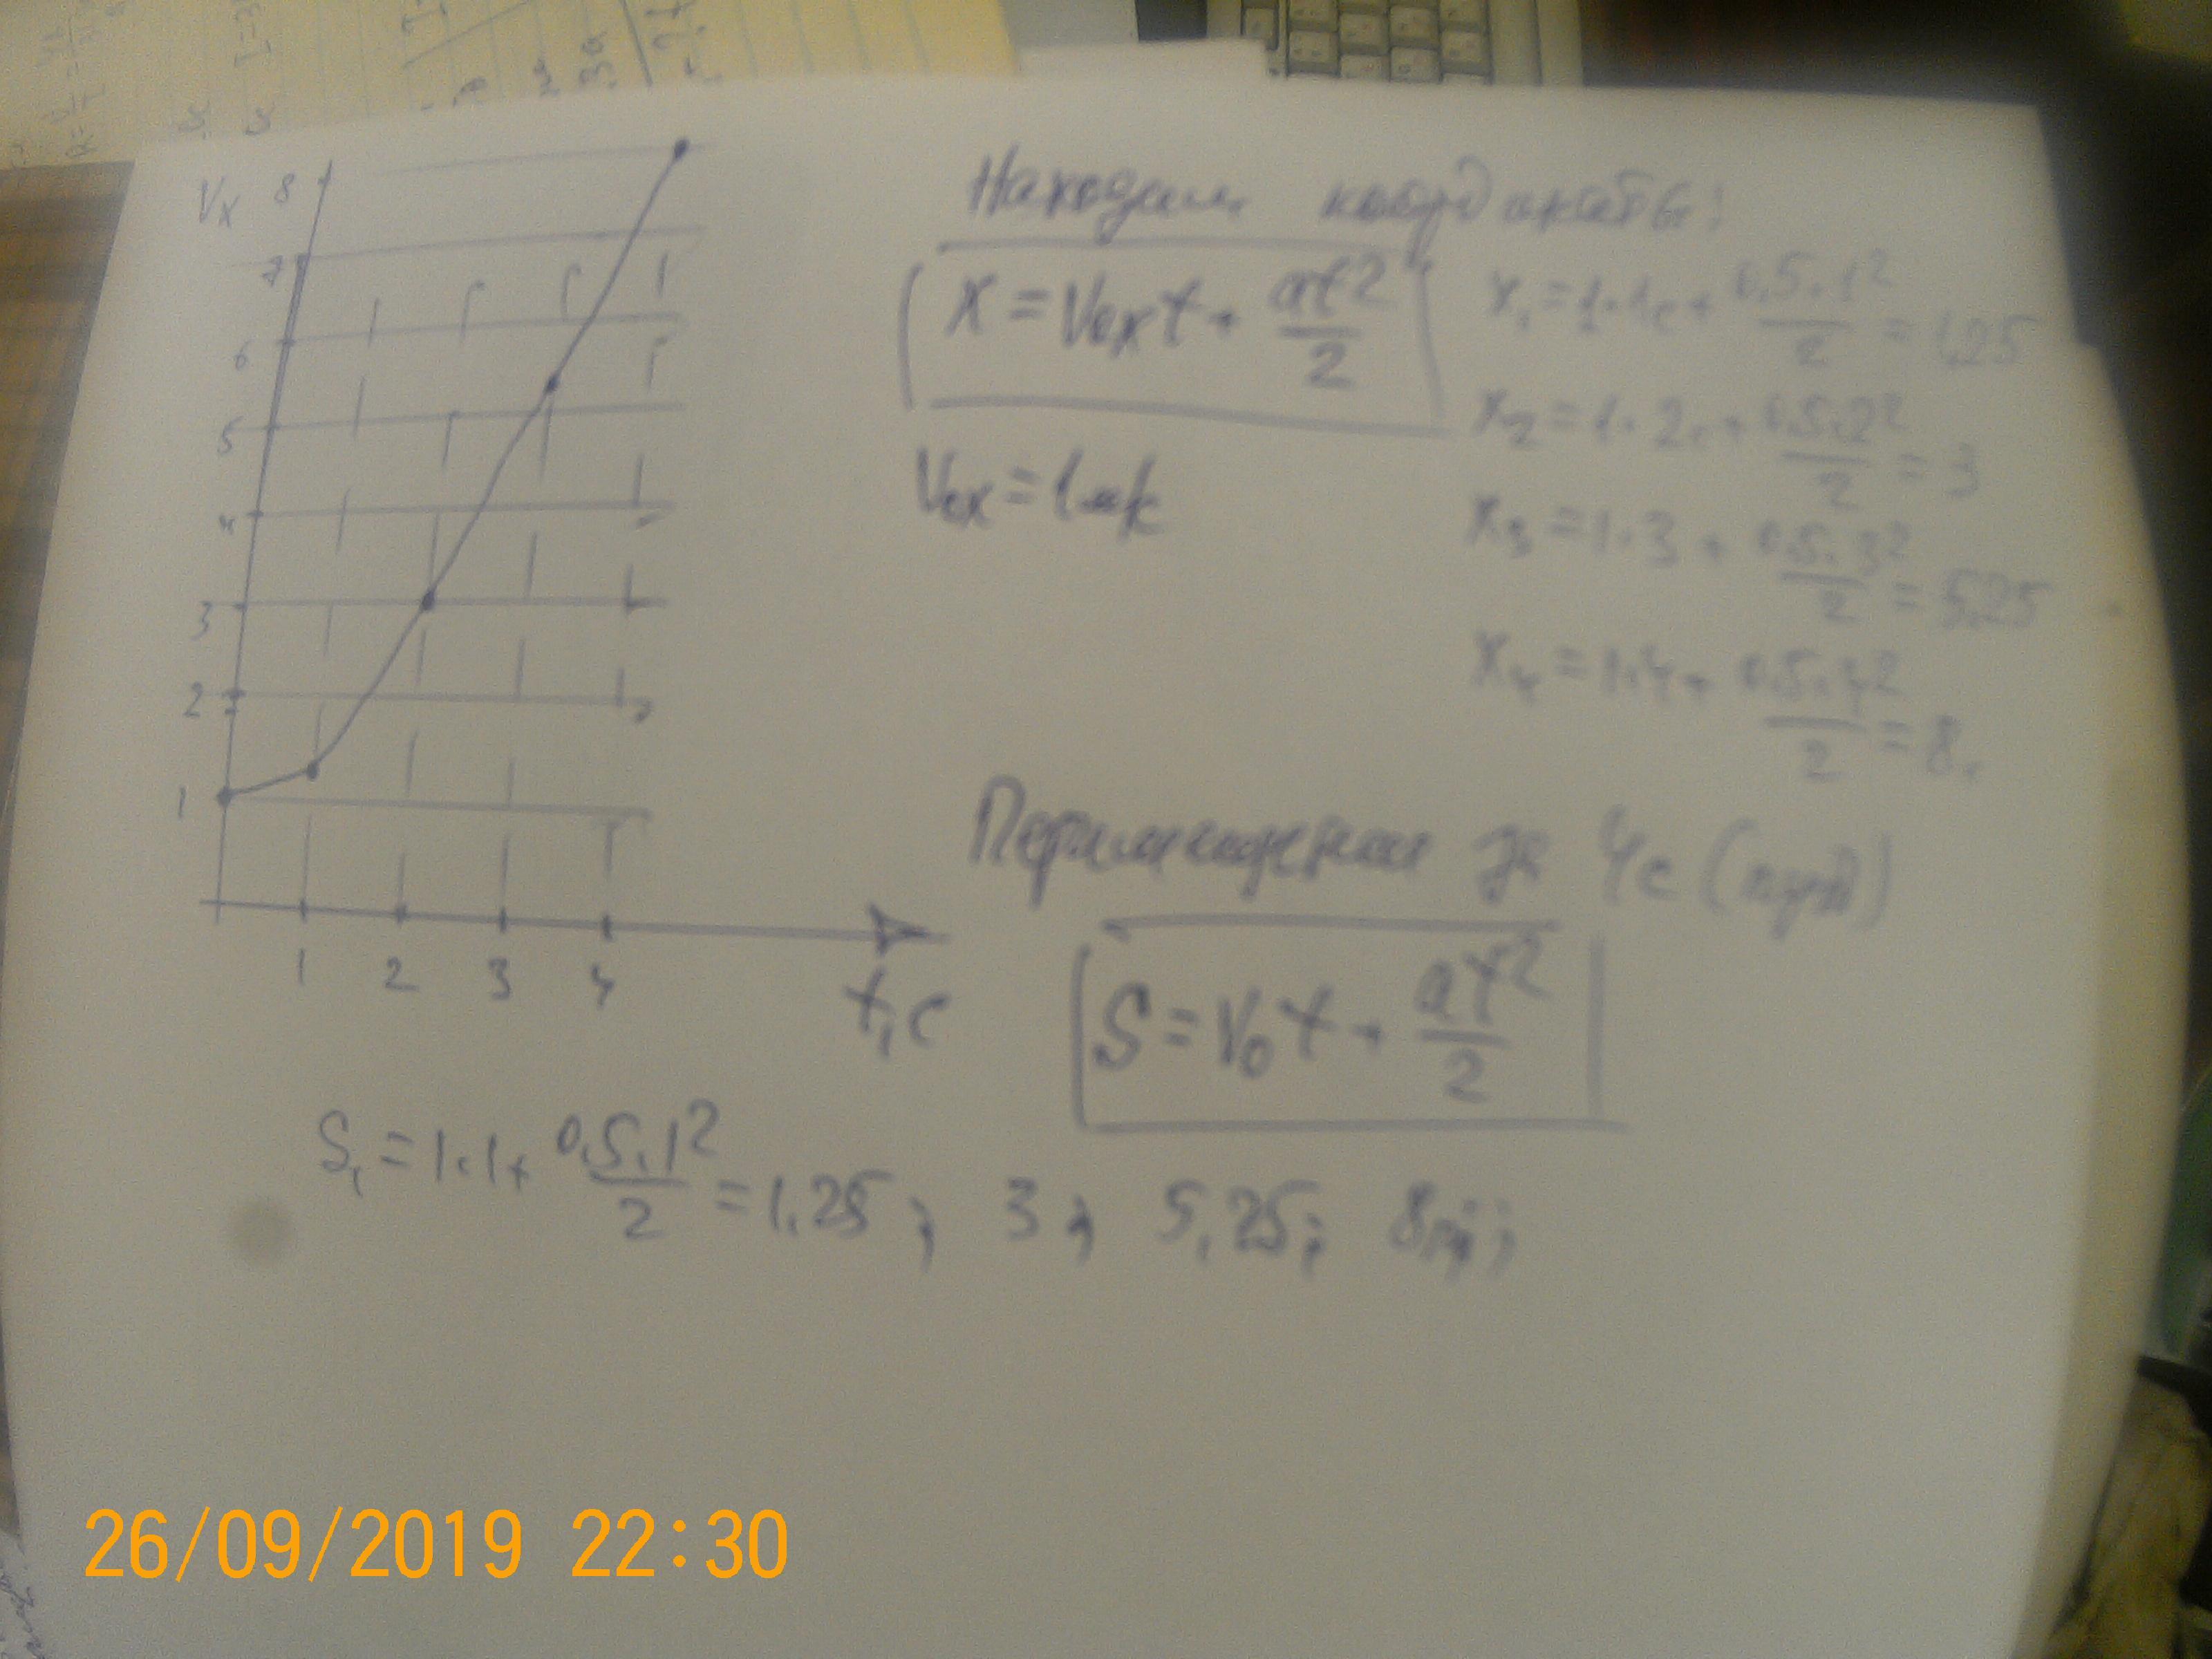 Vx
8
7
6
5
4
3
2
1
1 2 3 4
t,c
Находим координаты:
X = V₀xt + at²/2
V₀x = 1 м/с
X₁ = 1·1c + 0.5·1²/2 = 1,25
X₂ = 1·2c + 0.5·2²/2 = 3
X₃ = 1·3 + 0.5·3²/2 = 5,25
X₄ = 1·4 + 0.5·4²/2 = 8.
Перемещения за 4c (путь)
S = V₀t + at²/2
S₁ = 1·1 + 0.5·1²/2 = 1.25; 3; 5,25; 8
26/09/2019 22:30